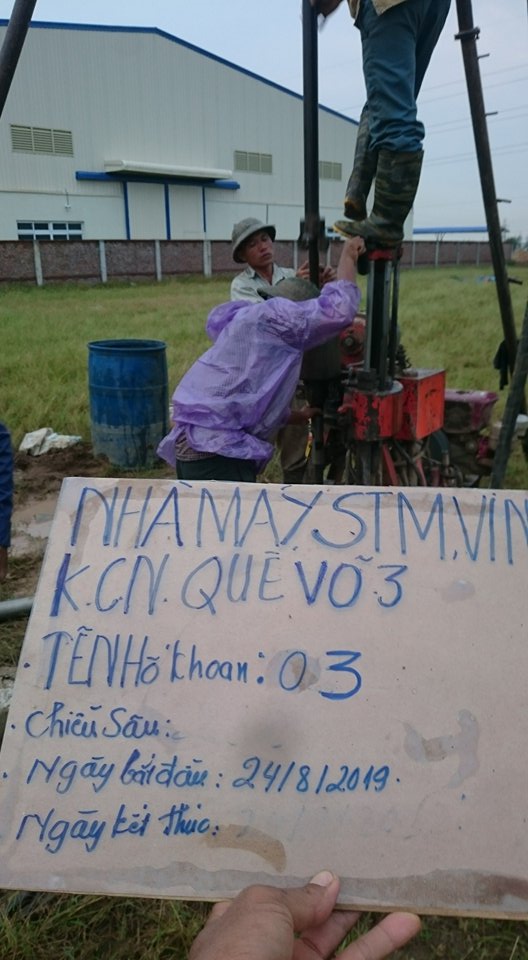 NHÀ MÁY STM.VIN
K.C.N. QUẾ VÕ 3
• TÊN Hố Khoan: 03
• Chiều Sâu:
• Ngày bắt đầu: 24/8/2019.
Ngày kết thúc: